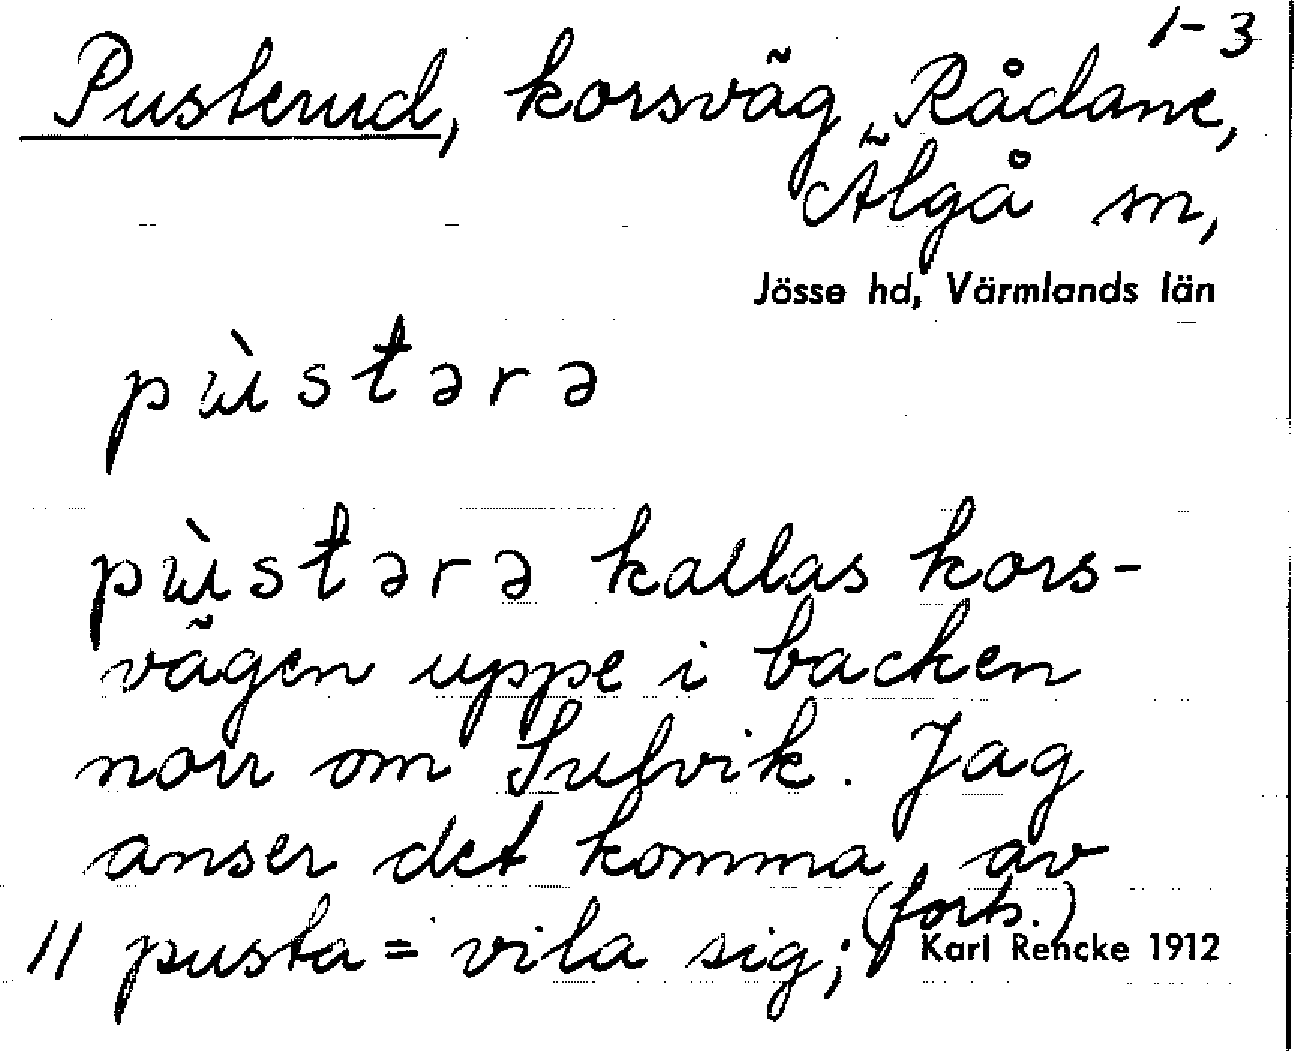 1-3
Pusterud, korsväg, Rådane,
Älgå sn,
Jösse hd, Värmlands län
pɯ̀stərə
pɯ̀stərə kallas kors-
vägen uppe i backen
norr om Sulvik. Jag
anser det komma av
// pusta = vila sig; (forts.)
Karl Rencke 1912